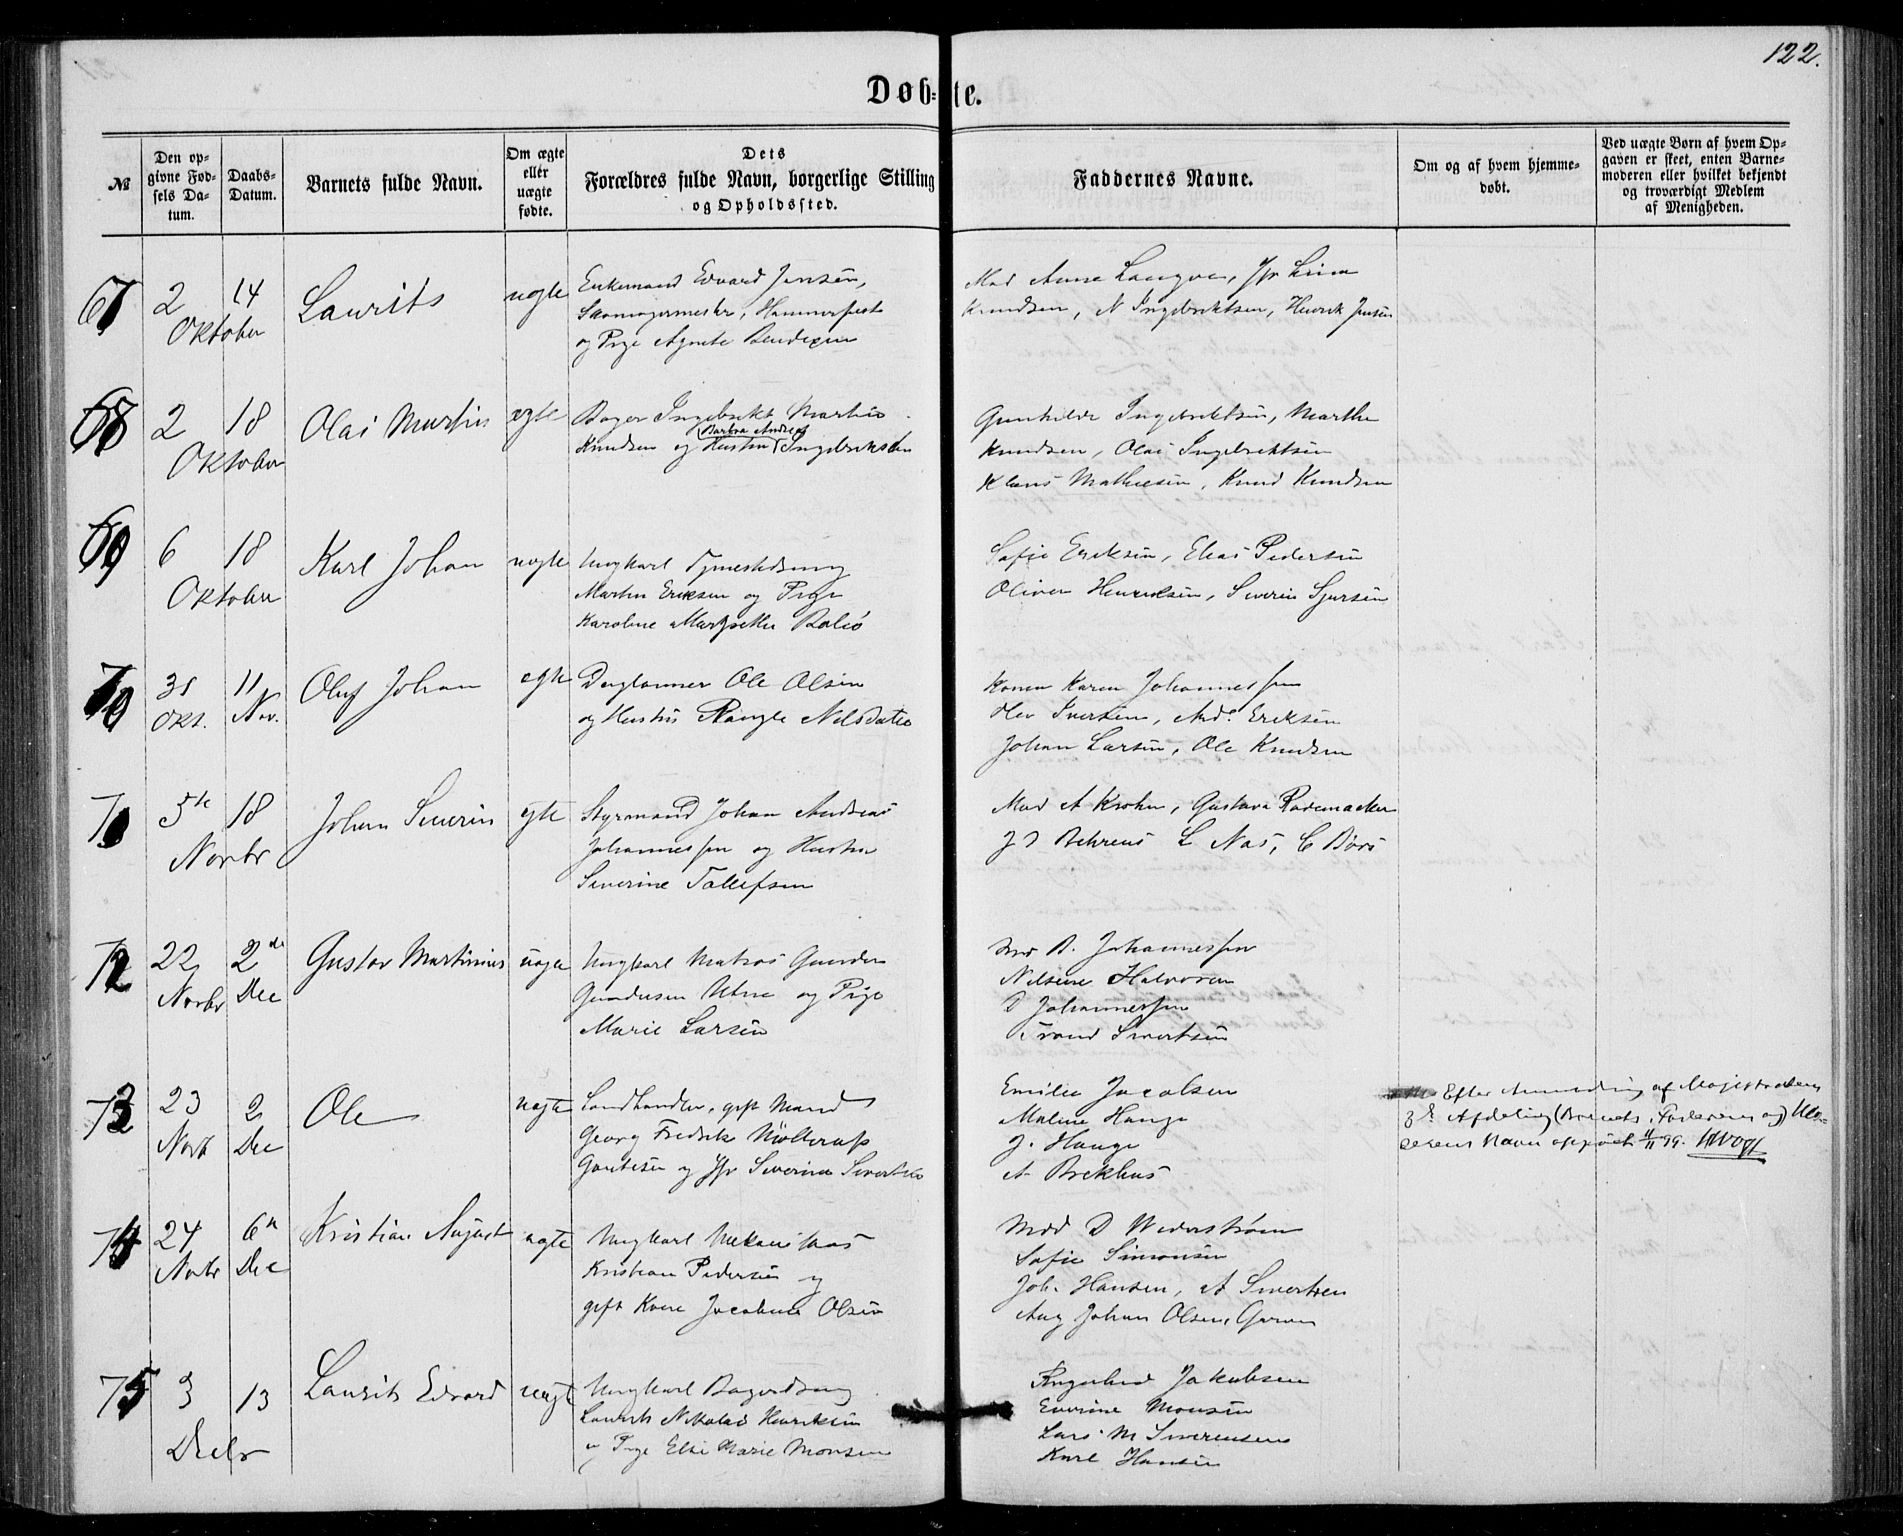 122.
Døb-te.
№
Den op-
givne Fød-
sels Da-
tum.
Daabs-
Datum.
Barnets fulde Navn.
Om ægte
eller
uægte
fødte.
Dets
Forældres fulde Navn, borgerlige Stilling
og Opholdssted.
Faddernes Navne.
Om og af hvem hjemme-
døbt.
Ved uægte Børn af hvem Op-
gaven er skeet, enten Barne-
moderen eller hvilket bekjendt
og troværdigt Medlem
af Menigheden.
67
2 14
Oktober
Laurits
uægte
Enkemand Edvard Jensen,
Hammerfest
og Pige Agnete Bendixen
Mad Anna Langva, Jfr Lina
Knudsen, N Ingebriktsen, Henrik Jensen
68
2 18
Oktober
Olai Martin
ægte
Bager Ingebrikt Martin
Knudsen og Hustru Barbra Andrea Ingebriktsen
Gunhilde Ingebriktsen, Marthe
Knudsen, Olai Ingebriktsen
Klaus Mathiesen, Knud Knudsen
69
6 18
Oktober
Karl Johan
uægte
Ungkarl
Martin Eriksen og Pige
Karoline Margrethe
Sofie Eriksen, Elias Pedersen
Oliver Henriksen, Severin Sjursen
70
31 11
Okt. Nov.
Oluf Johan
ægte
Daglønner Ole Olsen
og Hustru Rangle Nilsdatter
Konen Karen Johannessen
Iversen, And. Eriksen
Johan Larsen, Ole Knudsen
71
5te 18
Novbr
Johan Severin
ægte
Styrmand Johan Andreas
Johannessen og Hustru
Severine Tollefsen
Mad A Krohn, Gustava Rademacher
J D Behrens L Nas, C Børs
72
22 2de
Novbr Dec
Gustav Martinius
uægte
Ungkarl Matros Gunder
Gundersen Utne og Pige
Marie Larsen
Mad B. Johannessen
Nilsine Halvorsen
D Johannessen
Trond Sivertsen
73
23 2
Novb Dec
Ole
uægte
Landhandler, gift Mand
Georg Fredrik Møllerup
Gautesen og Jfr Severine Sivertsen
Emilie Jacobsen
Maline Hauge
J. Hauge
A Brekhus
Efter Anmodning af Magistratens
3de Afdeling (Barnets, Faderens og) Mo-
derens Navn opført 11/11 99.
74
24 6te
Novbr Dec
Kristian August
uægte
Ungkarl Mekanikus
Kristian Pedersen og
gift Kone Jacobine Olsen
Mad D Wederstrøm
Sofie Simonsen
Joh. Hansen, A Sivertsen
Aug Johan Olsen,
75
3 13
Decbr
Laurits Edvard
uægte
Ungkarl Bagerdreng
Laurits Nikolai Henriksen
og Pige Elsie Marie Monsen
Ingeborg Jakobsen
Everine Monsen
Lars M Severensen
Karl Hansen